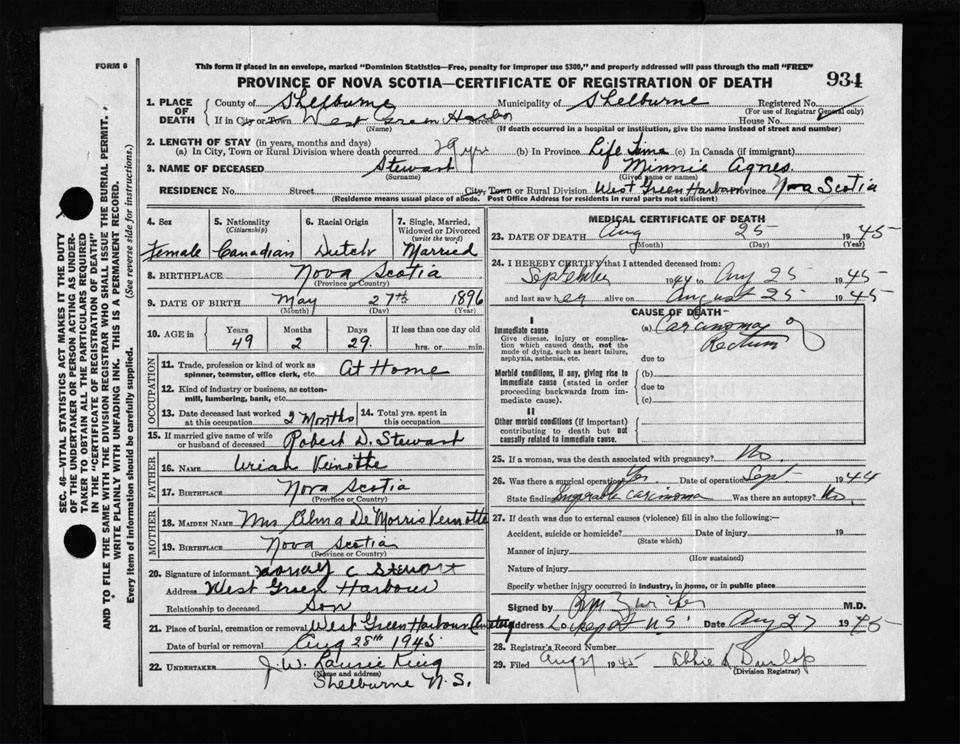 FORM 6
This form if placed in an envelope, marked "Dominion Statistics—Free, penalty for improper use $300," and properly addressed will pass through the mail "FREE"
PROVINCE OF NOVA SCOTIA—CERTIFICATE OF REGISTRATION OF DEATH
934
1. PLACE OF DEATH
County of Shelburne Municipality of Shelburne Registered No.
(For use of Registrar General only)
If in City or Town West Green Harbor Street House No.
(Name) (If death occurred in a hospital or institution, give the name instead of street and number)
2. LENGTH OF STAY (in years, months and days)
(a) In City, Town or Rural Division where death occurred 29 yrs (b) In Province Life Time (c) In Canada (if immigrant)
3. NAME OF DECEASED Stewart Minnie Agnes
(Surname) (Given name or names)
RESIDENCE No. Street City, Town or Rural Division West Green Harbour Province Nova Scotia
(Residence means usual place of abode. Post Office Address for residents in rural parts not sufficient)
4. Sex Female
5. Nationality (Citizenship) Canadian
6. Racial Origin Dutch
7. Single, Married, Widowed or Divorced (write the word) Married
8. BIRTHPLACE Nova Scotia
(Province or Country)
9. DATE OF BIRTH May 27th 1896
(Month) (Day) (Year)
10. AGE in Years 49 Months 2 Days 29 If less than one day old hrs. or min.
OCCUPATION
11. Trade, profession or kind of work as spinner, teamster, office clerk, etc. At Home
12. Kind of industry or business, as cotton-mill, lumbering, bank, etc.
13. Date deceased last worked at this occupation 2 Months
14. Total yrs. spent in this occupation
15. If married give name of wife or husband of deceased Robert D. Stewart
FATHER
16. NAME Uriah
17. BIRTHPLACE Nova Scotia
(Province or Country)
MOTHER
18. MAIDEN NAME Mrs Alma De Morris
19. BIRTHPLACE Nova Scotia
(Province or Country)
20. Signature of informant C Stewart
Address West Green Harbour
Relationship to deceased Son
21. Place of burial, cremation or removal West Green Harbour
Date of burial or removal Aug 28th 1945
22. UNDERTAKER J. W. Laurie King
(Name and address)
Shelburne N. S.
MEDICAL CERTIFICATE OF DEATH
23. DATE OF DEATH Aug 25 1945
(Month) (Day) (Year)
24. I HEREBY CERTIFY that I attended deceased from:
September 1944 to Aug 25 1945
and last saw her alive on August 25 1945
CAUSE OF DEATH
I
Immediate cause (a) Carcinoma of Rectum
Give disease, injury or complication which caused death, not the mode of dying, such as heart failure, asphyxia, asthenia, etc.
due to
Morbid conditions, if any, giving rise to immediate cause (stated in order proceeding backwards from immediate cause). (b)
due to
(c)
II
Other morbid conditions (if important) contributing to death but not causally related to immediate cause.
25. If a woman, was the death associated with pregnancy? No.
26. Was there a surgical operation? Yes. Date of operation Sept 1944
State finding Inoperable Carcinoma Was there an autopsy? No.
27. If death was due to external causes (violence) fill in also the following:—
Accident, suicide or homicide? Date of injury 19
(State which)
Manner of injury
(How sustained)
Nature of injury
Specify whether injury occurred in industry, in home, or in public place
Signed by M.D.
Address Lockeport N.S. Date Aug 27 1945
28. Registrar's Record Number
29. Filed Aug 27 1945 Abbie Dunlop
(Division Registrar)
SEC. 46—VITAL STATISTICS ACT MAKES IT THE DUTY
OF THE UNDERTAKER OR PERSON ACTING AS UNDER-
TAKER TO OBTAIN ALL THE PARTICULARS REQUIRED
IN THE "CERTIFICATE OF REGISTRATION OF DEATH"
AND TO FILE THE SAME WITH THE DIVISION REGISTRAR WHO SHALL ISSUE THE BURIAL PERMIT.
WRITE PLAINLY WITH UNFADING INK. THIS IS A PERMANENT RECORD.
Every item of information should be carefully supplied. (See reverse side for instructions.)